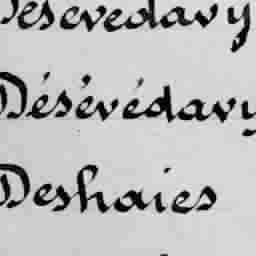 Desevedavy
Désévédavy
Deshaies